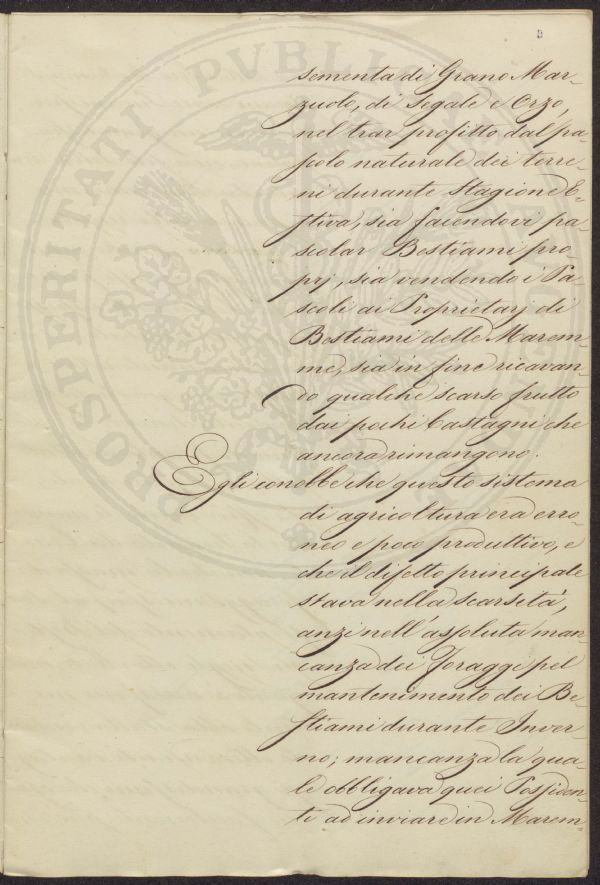 3
PROSPERITATI PVBLICAE AVGENDAE
sementa di Grano Mar-
zuolo, di Segale e Orzo,
nel trar profitto dal pa-
scolo naturale dei terre-
ni durante Stagione E-
stiva, sia facendovi pa-
scolar Bestiami pro-
prj, sia vendendo i Pa-
scoli ai Proprietarj di
Bestiami delle Marem-
me, sia in fine ricavan-
do qualche scarso frutto
dai pochi Castagni che
ancora rimangono.
Egli conobbe che questo sistema
di agricoltura era erro-
neo e poco produttivo, e
che il difetto principale
stava nella scarsetà,
anzi nell'assoluta man-
canza dei Foraggi pel
mantenimento dei Be-
stiami durante Inver-
no; mancanza la qua-
le obbligava quei Possiden-
ti ad inviare in Marem-